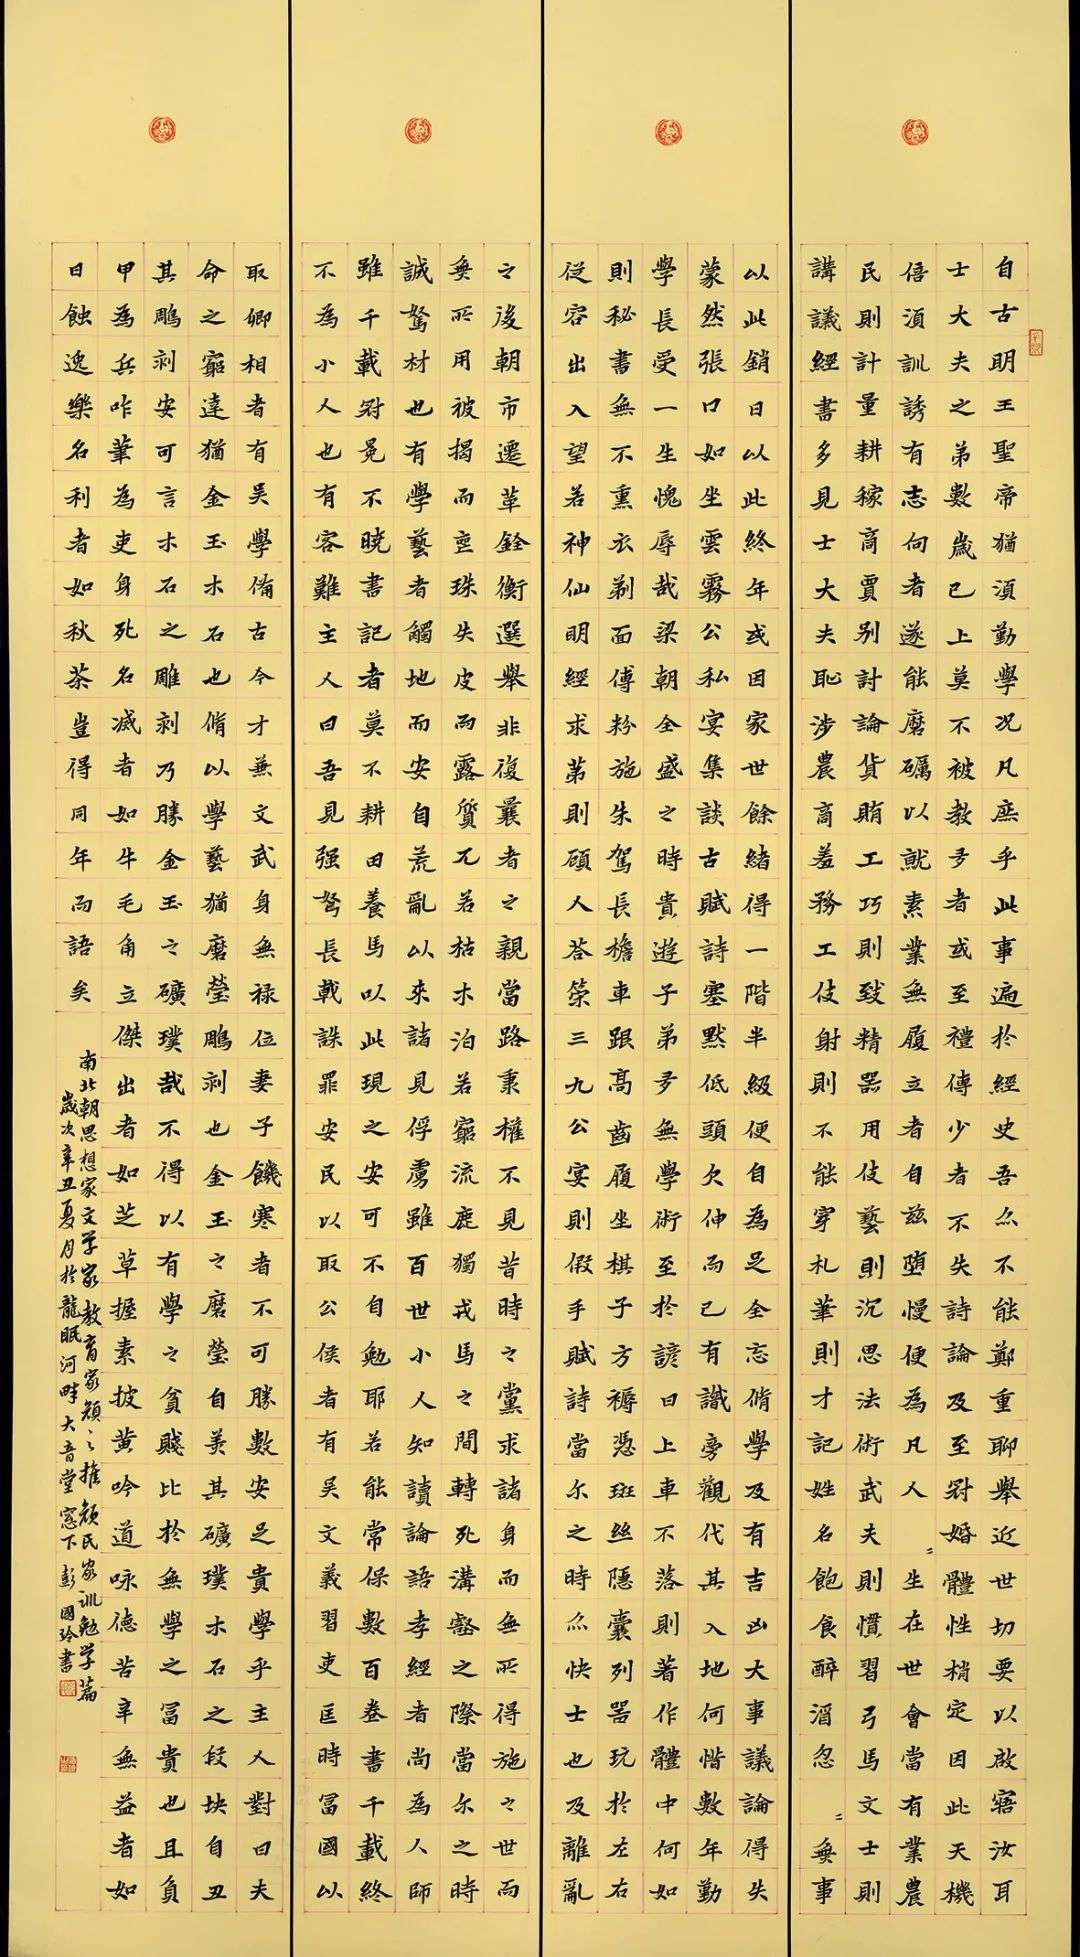 自古明王聖帝猶須勤學況凡庶乎此事遍於經史吾亦不能鄭重聊舉近世切要以啟寤汝耳
士大夫之弟數歲已上莫不被教多者或至禮傳少者不失詩論及至冠婚體性稍定因此天機
倍須訓誘有志向者遂能磨礪以就素業無履立者自茲墮慢便為凡人〻生在世會當有業農
民則計量耕稼商賈別討論貨賄工巧則致精器用伎藝則沉思法術武夫則慣習弓馬文士則
講議經書多見士大夫恥涉農商羞務工伎射則不能穿札筆則才記姓名飽食醉酒忽〻無事
以此銷日以此終年或因家世餘緒得一階半級便自為足全忘脩學及有吉凶大事議論得失
蒙然張口如坐雲霧公私宴集談古賦詩塞默低頭欠伸而已有識旁觀代其入地何惜數年勤
學長受一生愧辱哉梁朝全盛之時貴遊子弟多無學術至於諺曰上車不落則著作體中何如
則秘書無不熏衣剃面傅粉施朱駕長檐車跟高齒履坐棋子方褥憑斑絲隱囊列器玩於左右
從容出入望若神仙明經求第則碩人荅策三九公宴則假手賦詩當尔之時亦快士也及離亂
之後朝市遷革銓衡選舉非復曩者之親當路秉權不見昔時之黨求諸身而無所得施之世而
無所用被揭而喪珠失皮而露質兀若枯木泊若窮流鹿獨戎馬之間轉死溝壑之際當尔之時
誠駑材也有學藝者觸地而安自荒亂以來諸見俘虜雖百世小人知讀論語孝經者尚為人師
雖千載冠冕不曉書記者莫不耕田養馬以此現之安可不自勉耶若能常保數百卷書千載終
不為小人也有客難主人曰吾見强弩長戟誅罪安民以取公侯者有吳文義習吏匡時富國以
取卿相者有吳學備古今才兼文武身無祿位妻子饑寒者不可勝數安足貴學乎主人對曰夫
命之窮達猶金玉木石也脩以學藝猶磨瑩雕剥也金玉之磨瑩自美其礦璞木石之段塊自丑
其雕剥安可言木石之雕剥乃勝金玉之礦璞哉不得以有學之貧賤比於無學之富貴也且負
甲為兵咋筆為吏身死名滅者如牛毛角立傑出者如芝草握素披黄吟道咏德苦辛無益者如
日蝕逸樂名利者如秋荼豈得同年而語矣
南北朝思想家文学家教育家顔之推顔氏家訓勉学篇
歲次辛丑夏月於龍眠河畔大音堂窓下彭國玲書